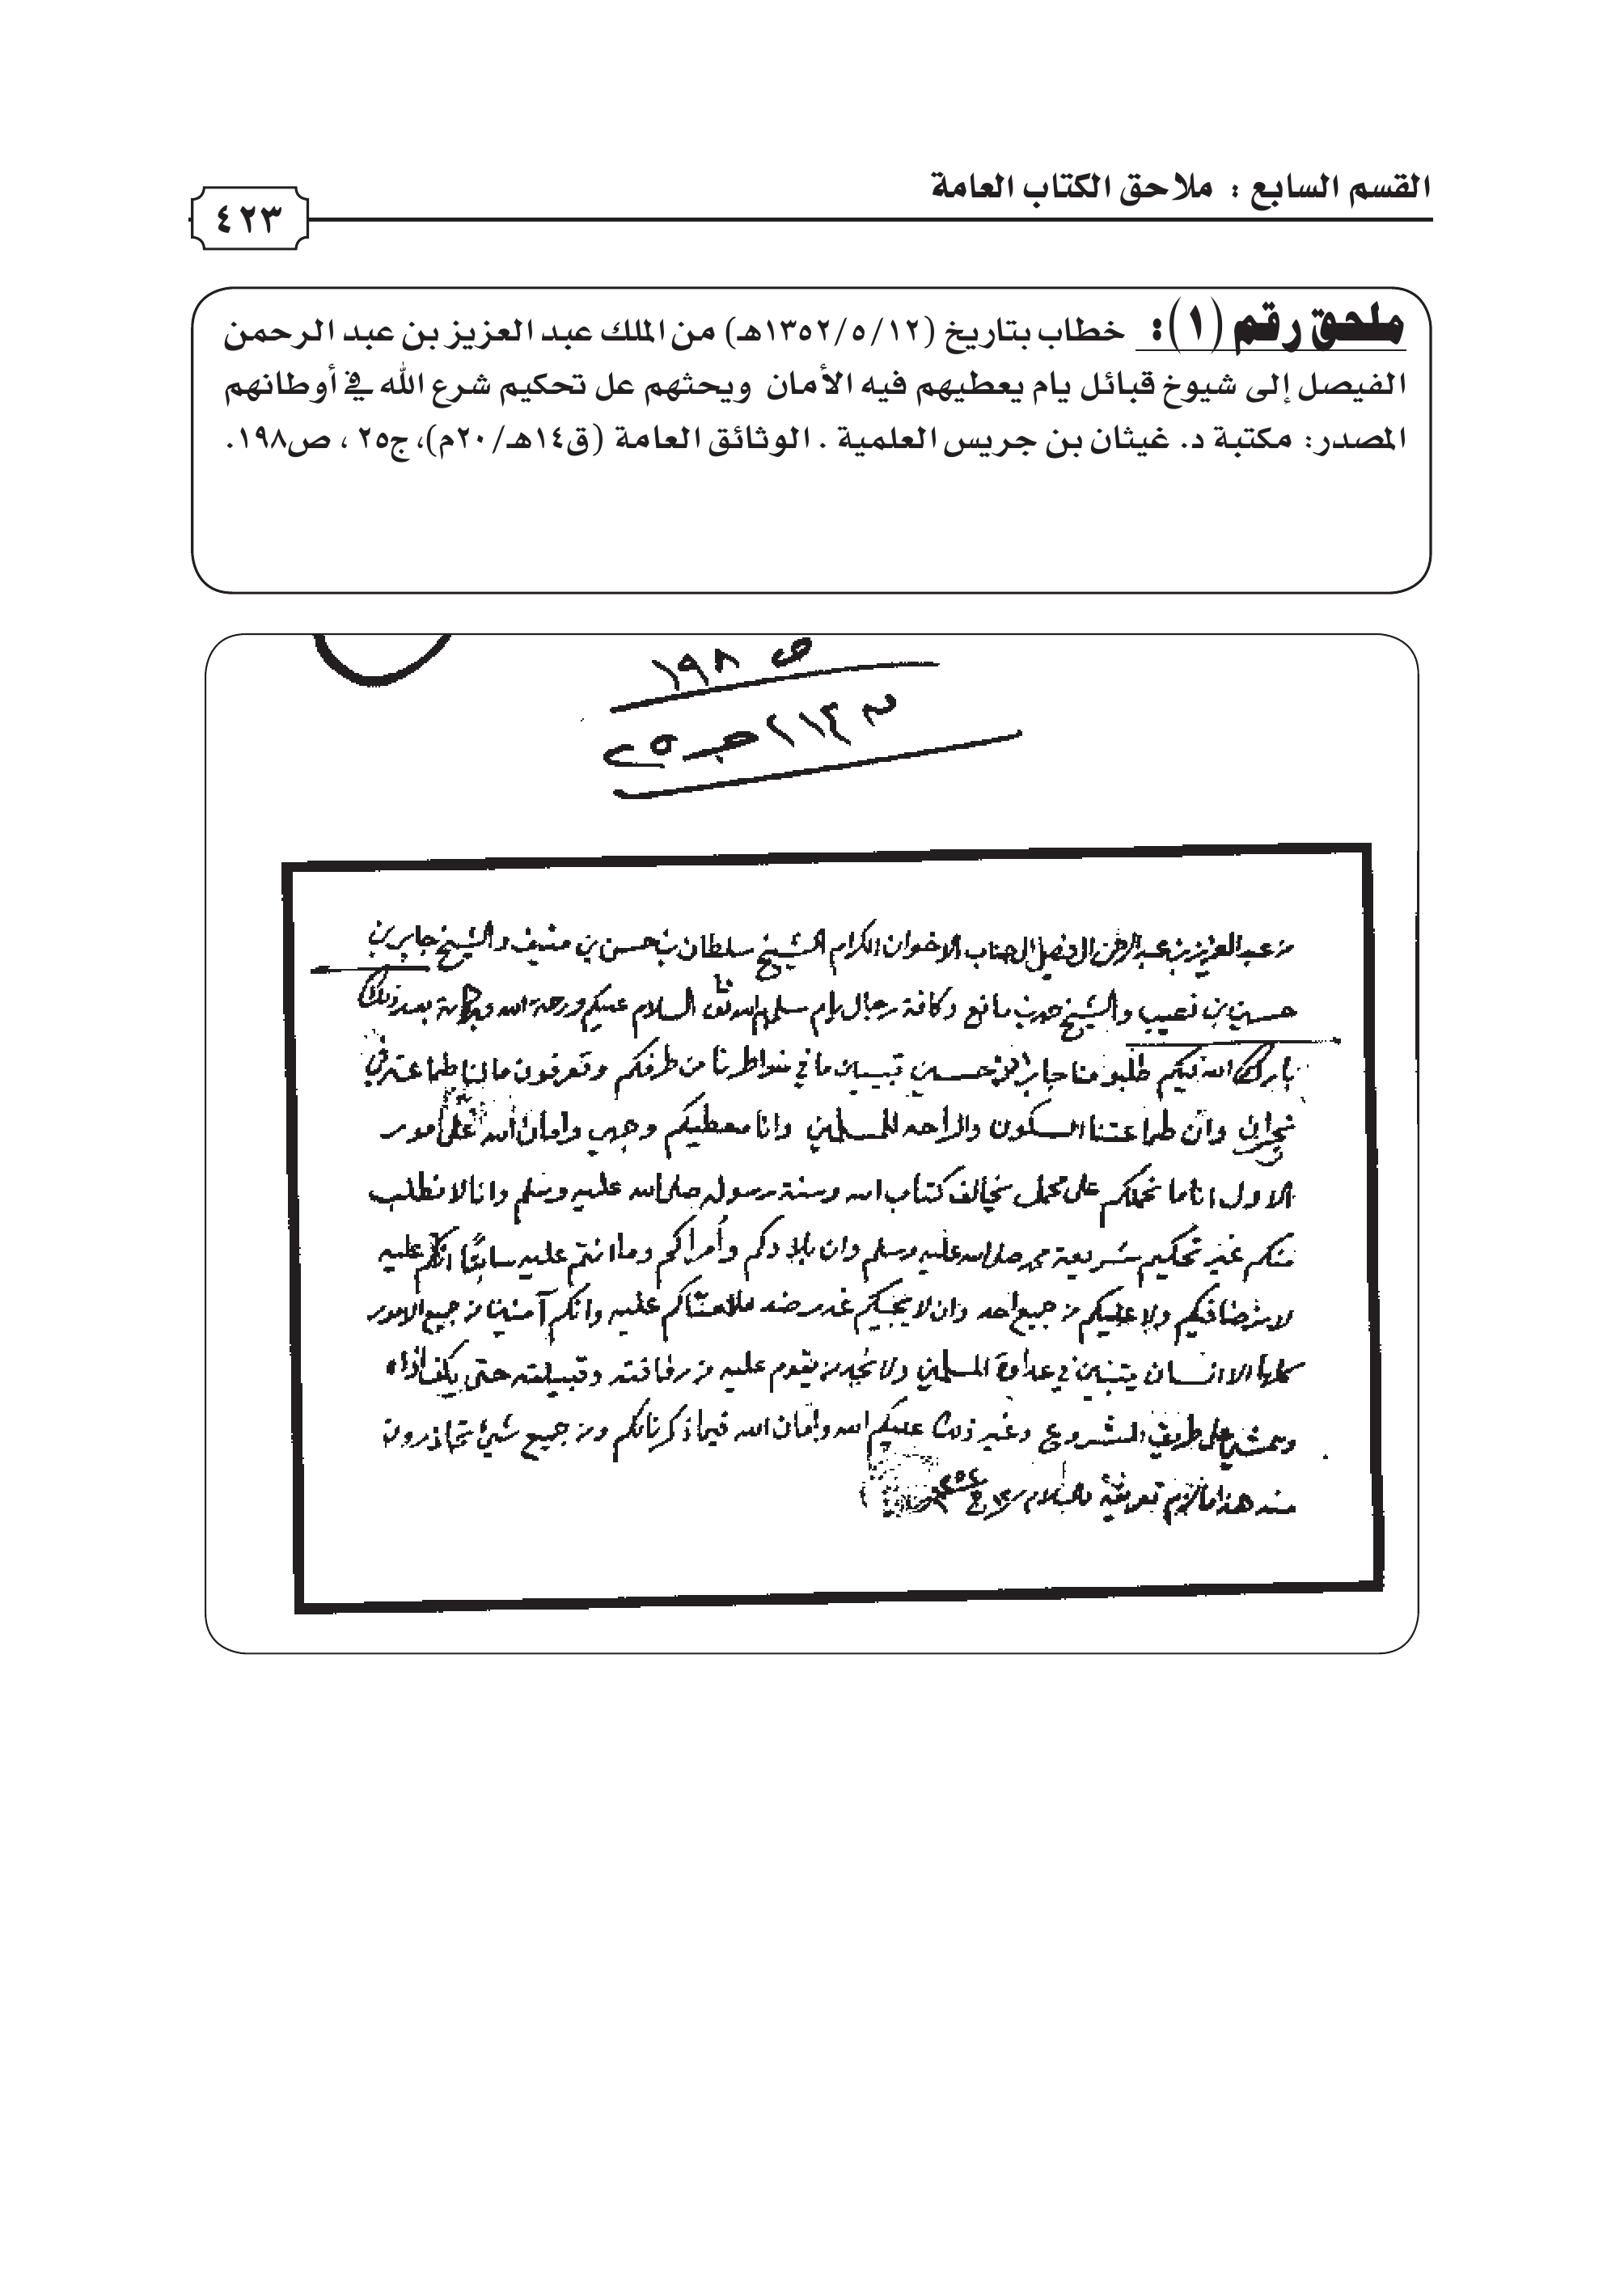 القسم السابع : ملاحق الكتاب العامة
٤٢٣
ملحق رقم (١): خطاب بتاريخ (١٣٥٢/٥/١٢هـ) من الملك عبد العزيز بن عبد الرحمن
الفيصل إلى شيوخ قبائل يام يعطيهم فيه الأمان ويحثهم عل تحكيم شرع الله في أوطانهم
المصدر: مكتبة د. غيثان بن جريس العلمية . الوثائق العامة (ق١٤هـ/٢٠م)، ج٢٥ ، ص١٩٨.
ص ١٩٨
جـ ٢٥
من عبد العزيز بن عبد الرحمن الفيصل الى جناب الاخوان الكرام الشيخ سلطان بن حسن بن منيف والشيخ جابر بن
حسين بن نصيب والشيخ حمد بن مانع وكافة رجال يام سلمهم الله تعالى السلام عليكم ورحمة الله وبركاته بعد ذلك
بارك الله فيكم طلبو منا جابر حسين تبيين ما في خواطرنا من طرفكم وتعرفون ما لنا طماعتن في
نجران وان طماعتنا السكون والراحه للمسلمين وانا معطيكم وجهي وامان الله على امور
الاول انا ما نحملكم على محمل يخالف كتاب الله وسنة رسوله صلى الله عليه وسلم وانا لا نطلب
منكم غير تحكيم شريعة محمد صلى الله عليه وسلم وان بلادكم وأمراكم وما انتم عليه سابقا انكم عليه
لا يرضا فيكم ولا عليكم من جميع احد وان لا يجيكم عليه وانكم آمنين من جميع الامور
كلها الا انسان يتبين في عداوة المسلمين ولا نجد من يقوم عليه من رفاقته وقبيلته حتى يكف اذاه
ويمشي على طريق المشروع وغير ذلك عليكم الله وامان الله فيما ذكرنا لكم ومن جميع شيئ تحاذرون
منه هذا ما لزم تعريفه والسلام